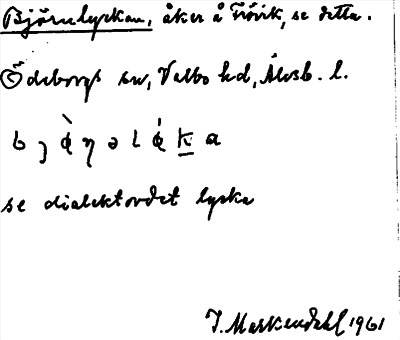 Björnlyckan, åker å Tisvik, se detta.
Ödeborgs sn, Valbo hd, Älvsb. l.
se dialektordet lycka
J. Markendahl 1961